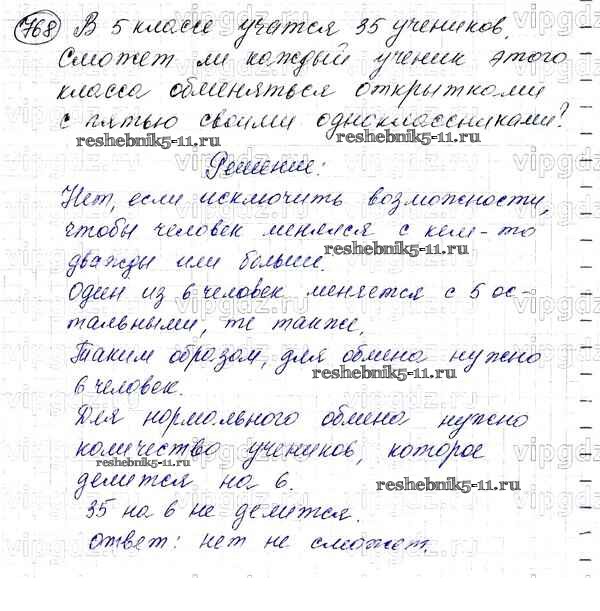 768 В 5 классе учатся 35 учеников.
Сможет ли каждый ученик этого
класса обменяться открытками
с пятью своими одноклассниками?
reshebnik5-11.ru reshebnik5-11.ru
Решение:
Нет, если исключить возможности,
чтобы человек менялся с кем-то
reshebnik5-11.ru
дважды или больше.
Один из 6 человек меняется с 5 ос-
тальными, те также.
Таким образом, для обмена нужно
reshebnik5-11.ru
6 человек.
Для нормального обмена нужно
количество учеников, которое
reshebnik5-11.ru
делится на 6.
reshebnik5-11.ru
35 на 6 не делится.
ответ: нет не сможет.